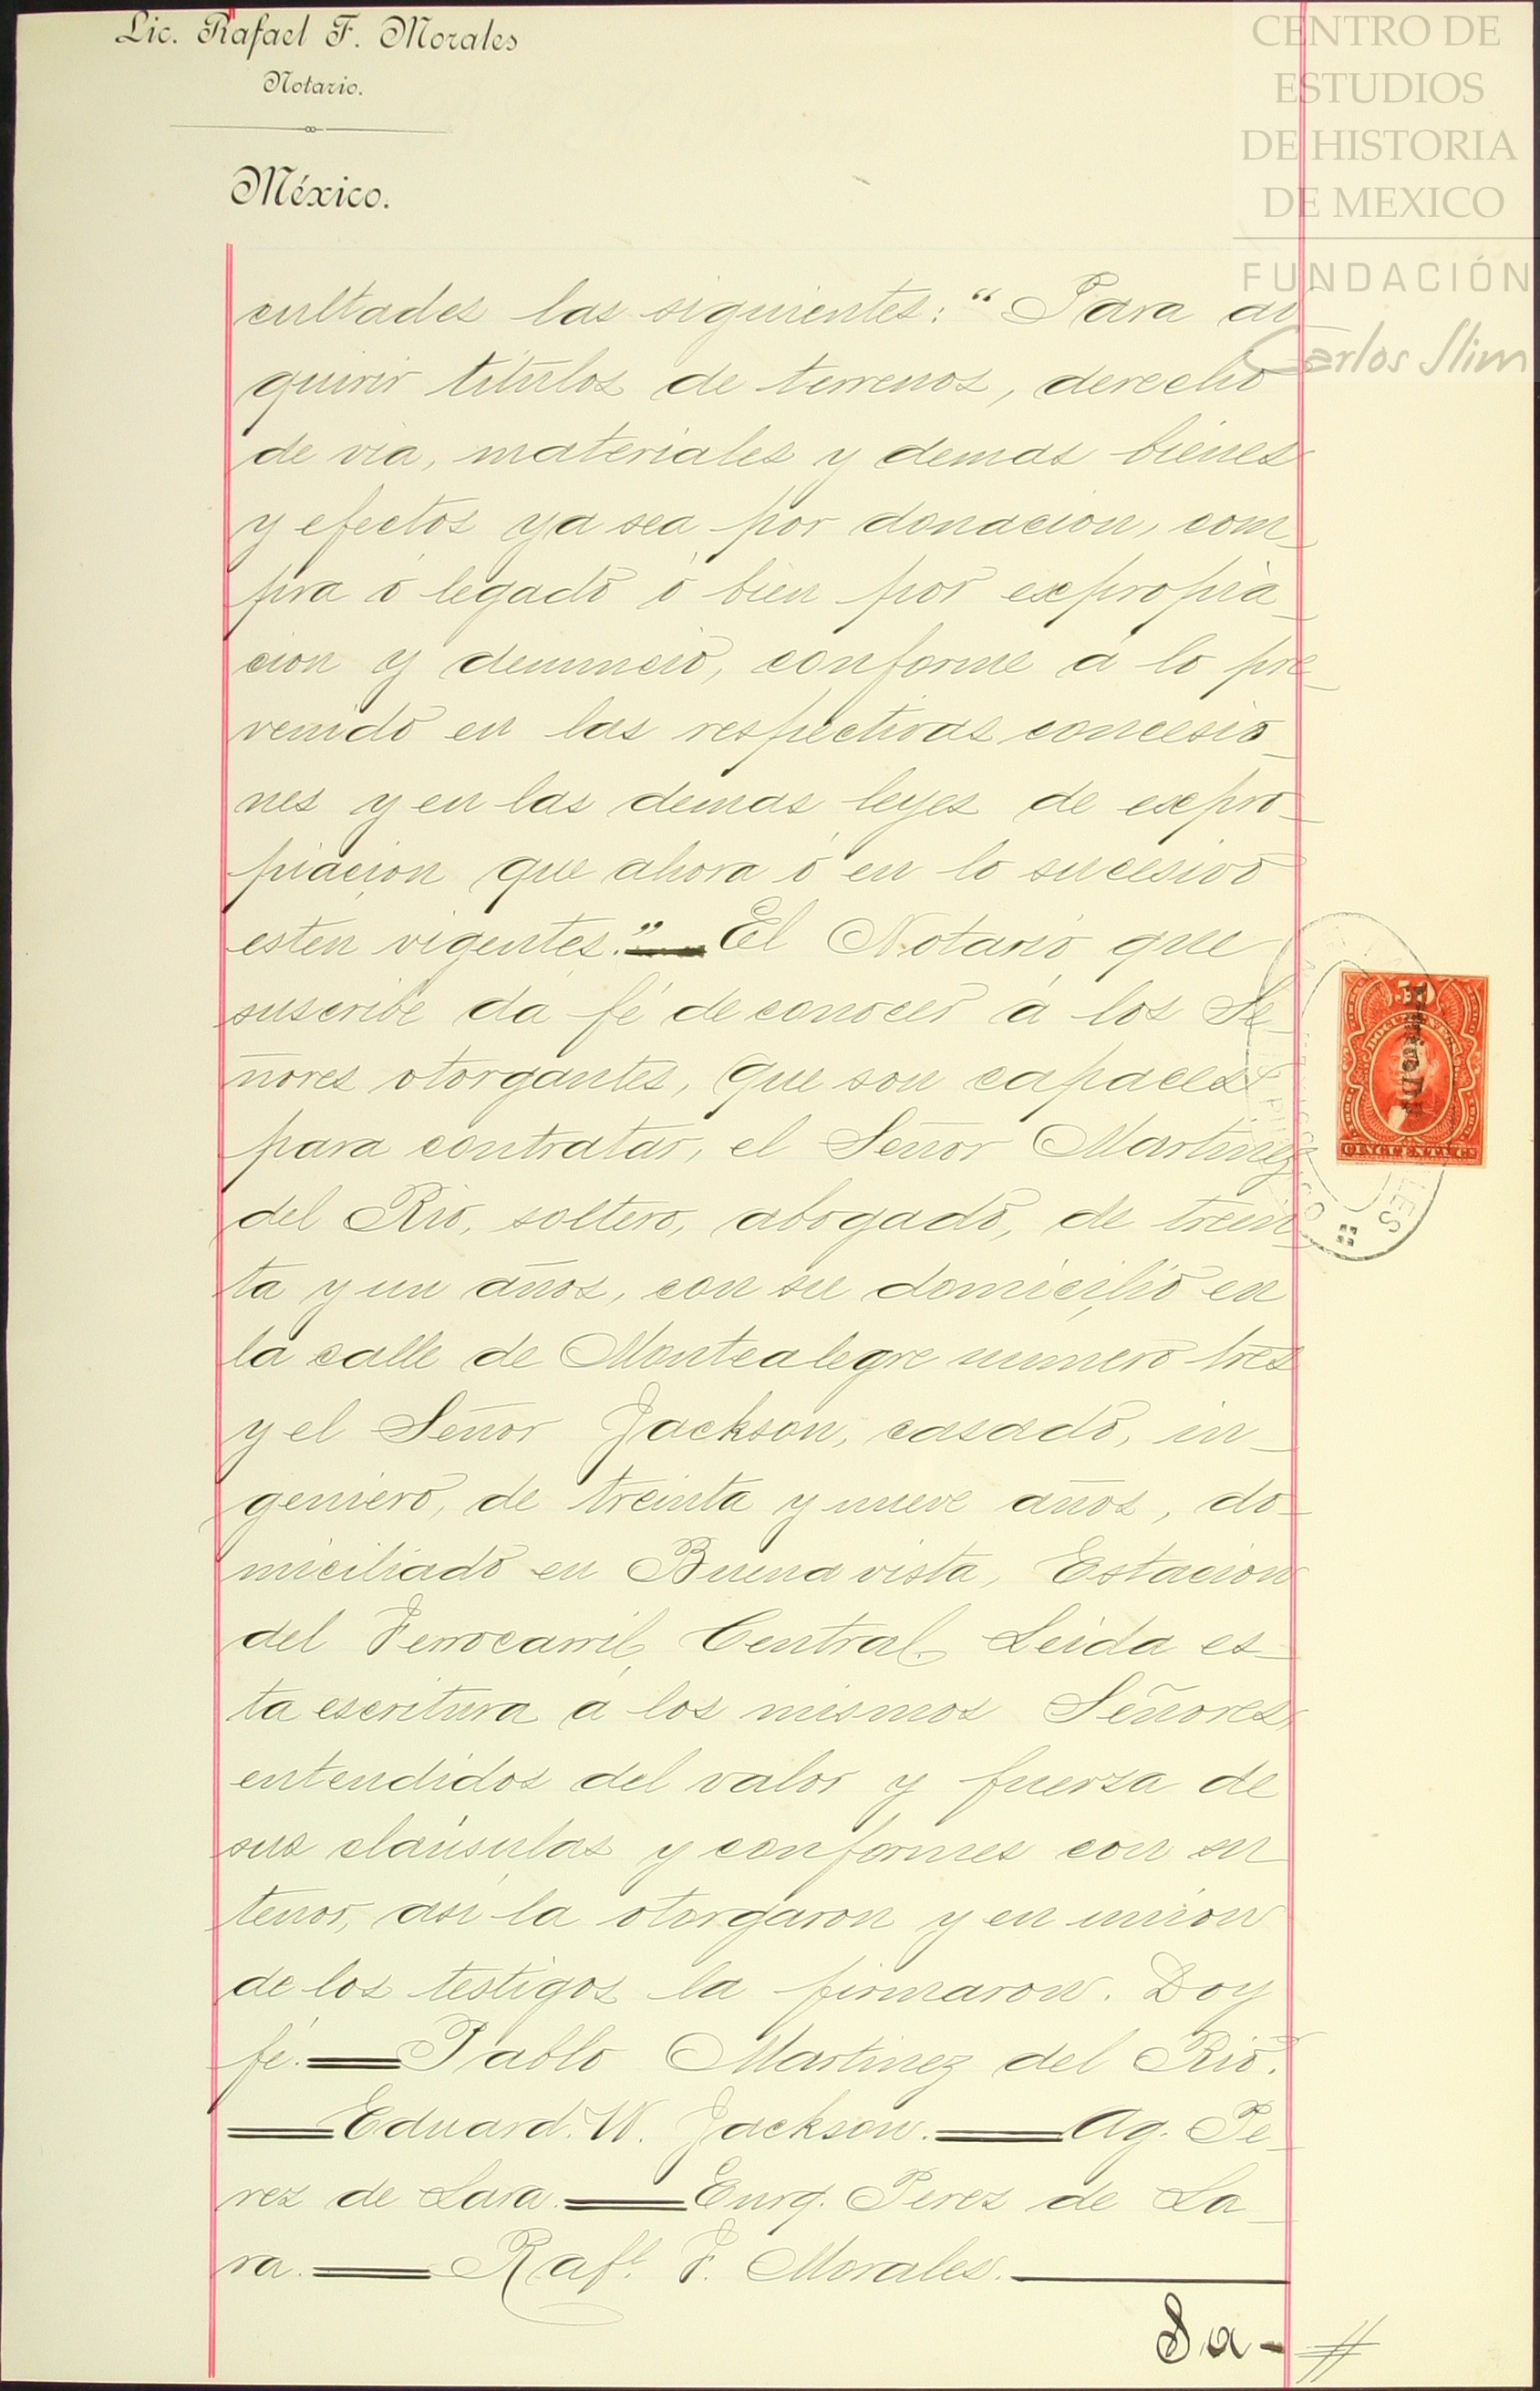 Lic. Rafael F. Morales
Notario.
México.
CENTRO DE
ESTUDIOS
DE HISTORIA
DE MEXICO
FUNDACIÓN
Carlos Slim
cultades las siguientes: “Para ad
quirir títulos de terrenos, derecho
de via, materiales y demas bienes
y efectos ya sea por donacion, com_
pra ó legado ó bien por expropia_
cion y denuncio, conforme á lo pre_
venido en las respectivas concesio_
nes y en las demas leyes de expro_
piacion que ahora ó en lo sucesivo
esten vigentes.”— El Notario que
suscribe da fé de conocer á los Se_
ñores otorgantes, que son capaces
para contratar, el Señor Martinez
del Rio, soltero, abogado, de trein_
ta y un años, con su domicilio en
la calle de Montealegre numero tres
y el Señor Jackson, casado, in_
geniero, de treinta y nueve años, do_
miciliado en Buena vista, Estacion
del Ferrocarril Central. Leida es_
ta escritura á los mismos Señores,
entendidos del valor y fuerza de
sus claúsulas y conformes con su
tenor, así la otorgaron y en union
de los testigos la firmaron. Doy
fé.=Pablo Martinez del Rio.
=Eduard. W. Jackson.=Ag. Pe_
rez de Lara.=Enrq. Perez de La_
ra.=Raf.l F. Morales.—
Sa-
DOCUMENTOS
México D.F.
CINCUENTA CS